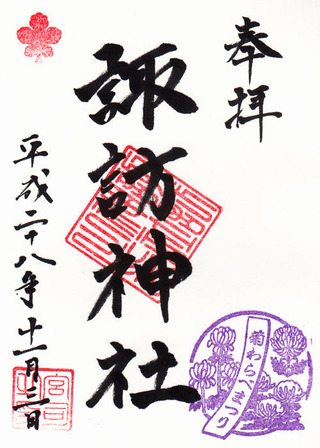 奉拝
諏訪神社
平成二十八年十一月三日
菊わらべまつり